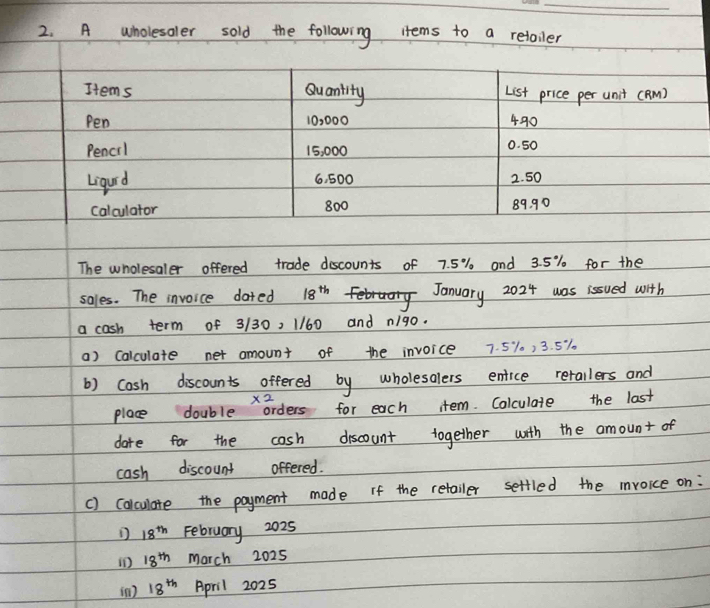 2. A wholesaler sold the following items to a retailer
Items Quantity List price per unit (RM)
Pen 10,000 4.90
Pencil 15,000 0.50
Liquid 6.500 2.50
Calculator 800 89.90
The wholesaler offered trade discounts of 7.5% and 3.5% for the
sales. The invoice dated 18th February January 2024 was issued with
a cash term of 3/30, 1/60 and n/90.
a) Calculate net amount of the invoice 7.5%, 3.5%
b) Cash discounts offered by wholesalers entice retailers and
x2
place double orders for each item. Calculate the last
date for the cash discount together with the amount of
cash discount offered.
c) Calculate the payment made if the retailer settled the invoice on:
i) 18th February 2025
ii) 18th March 2025
iii) 18th April 2025